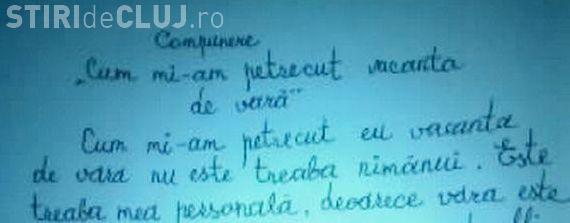 STIRIdeCLUJ.ro
Compunere
„Cum mi-am petrecut vacanta
de vară”
Cum mi-am petrecut eu vacanta
de vara nu este treaba nimănui. Este
treaba mea personală, deoarece vara este